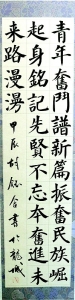 青年奮鬥譜新篇振奮民族崛
起身銘記先賢不忘本奮進未
來路漫漫 甲辰 胡 書於龍城